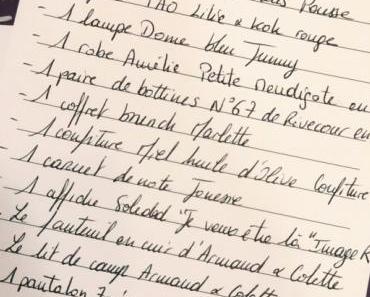 Pousse
TAO Lilie & Kok rouge
- 1 lampe Dome bleu Jummy
- 1 robe Amélie Petite Mendigote en
- 1 paire de bottines N°67 de Rivecour en
- 1 coffret brunch Marlette
- 1 confiture Miel huile d'olive Confiture
- 1 carnet de note
- 1 affiche Soledad "Je veux être là" Image R
- Le fauteuil en cuir d'Armand & Colette
- Le lit de camp Armand & Colette
1 pantalon